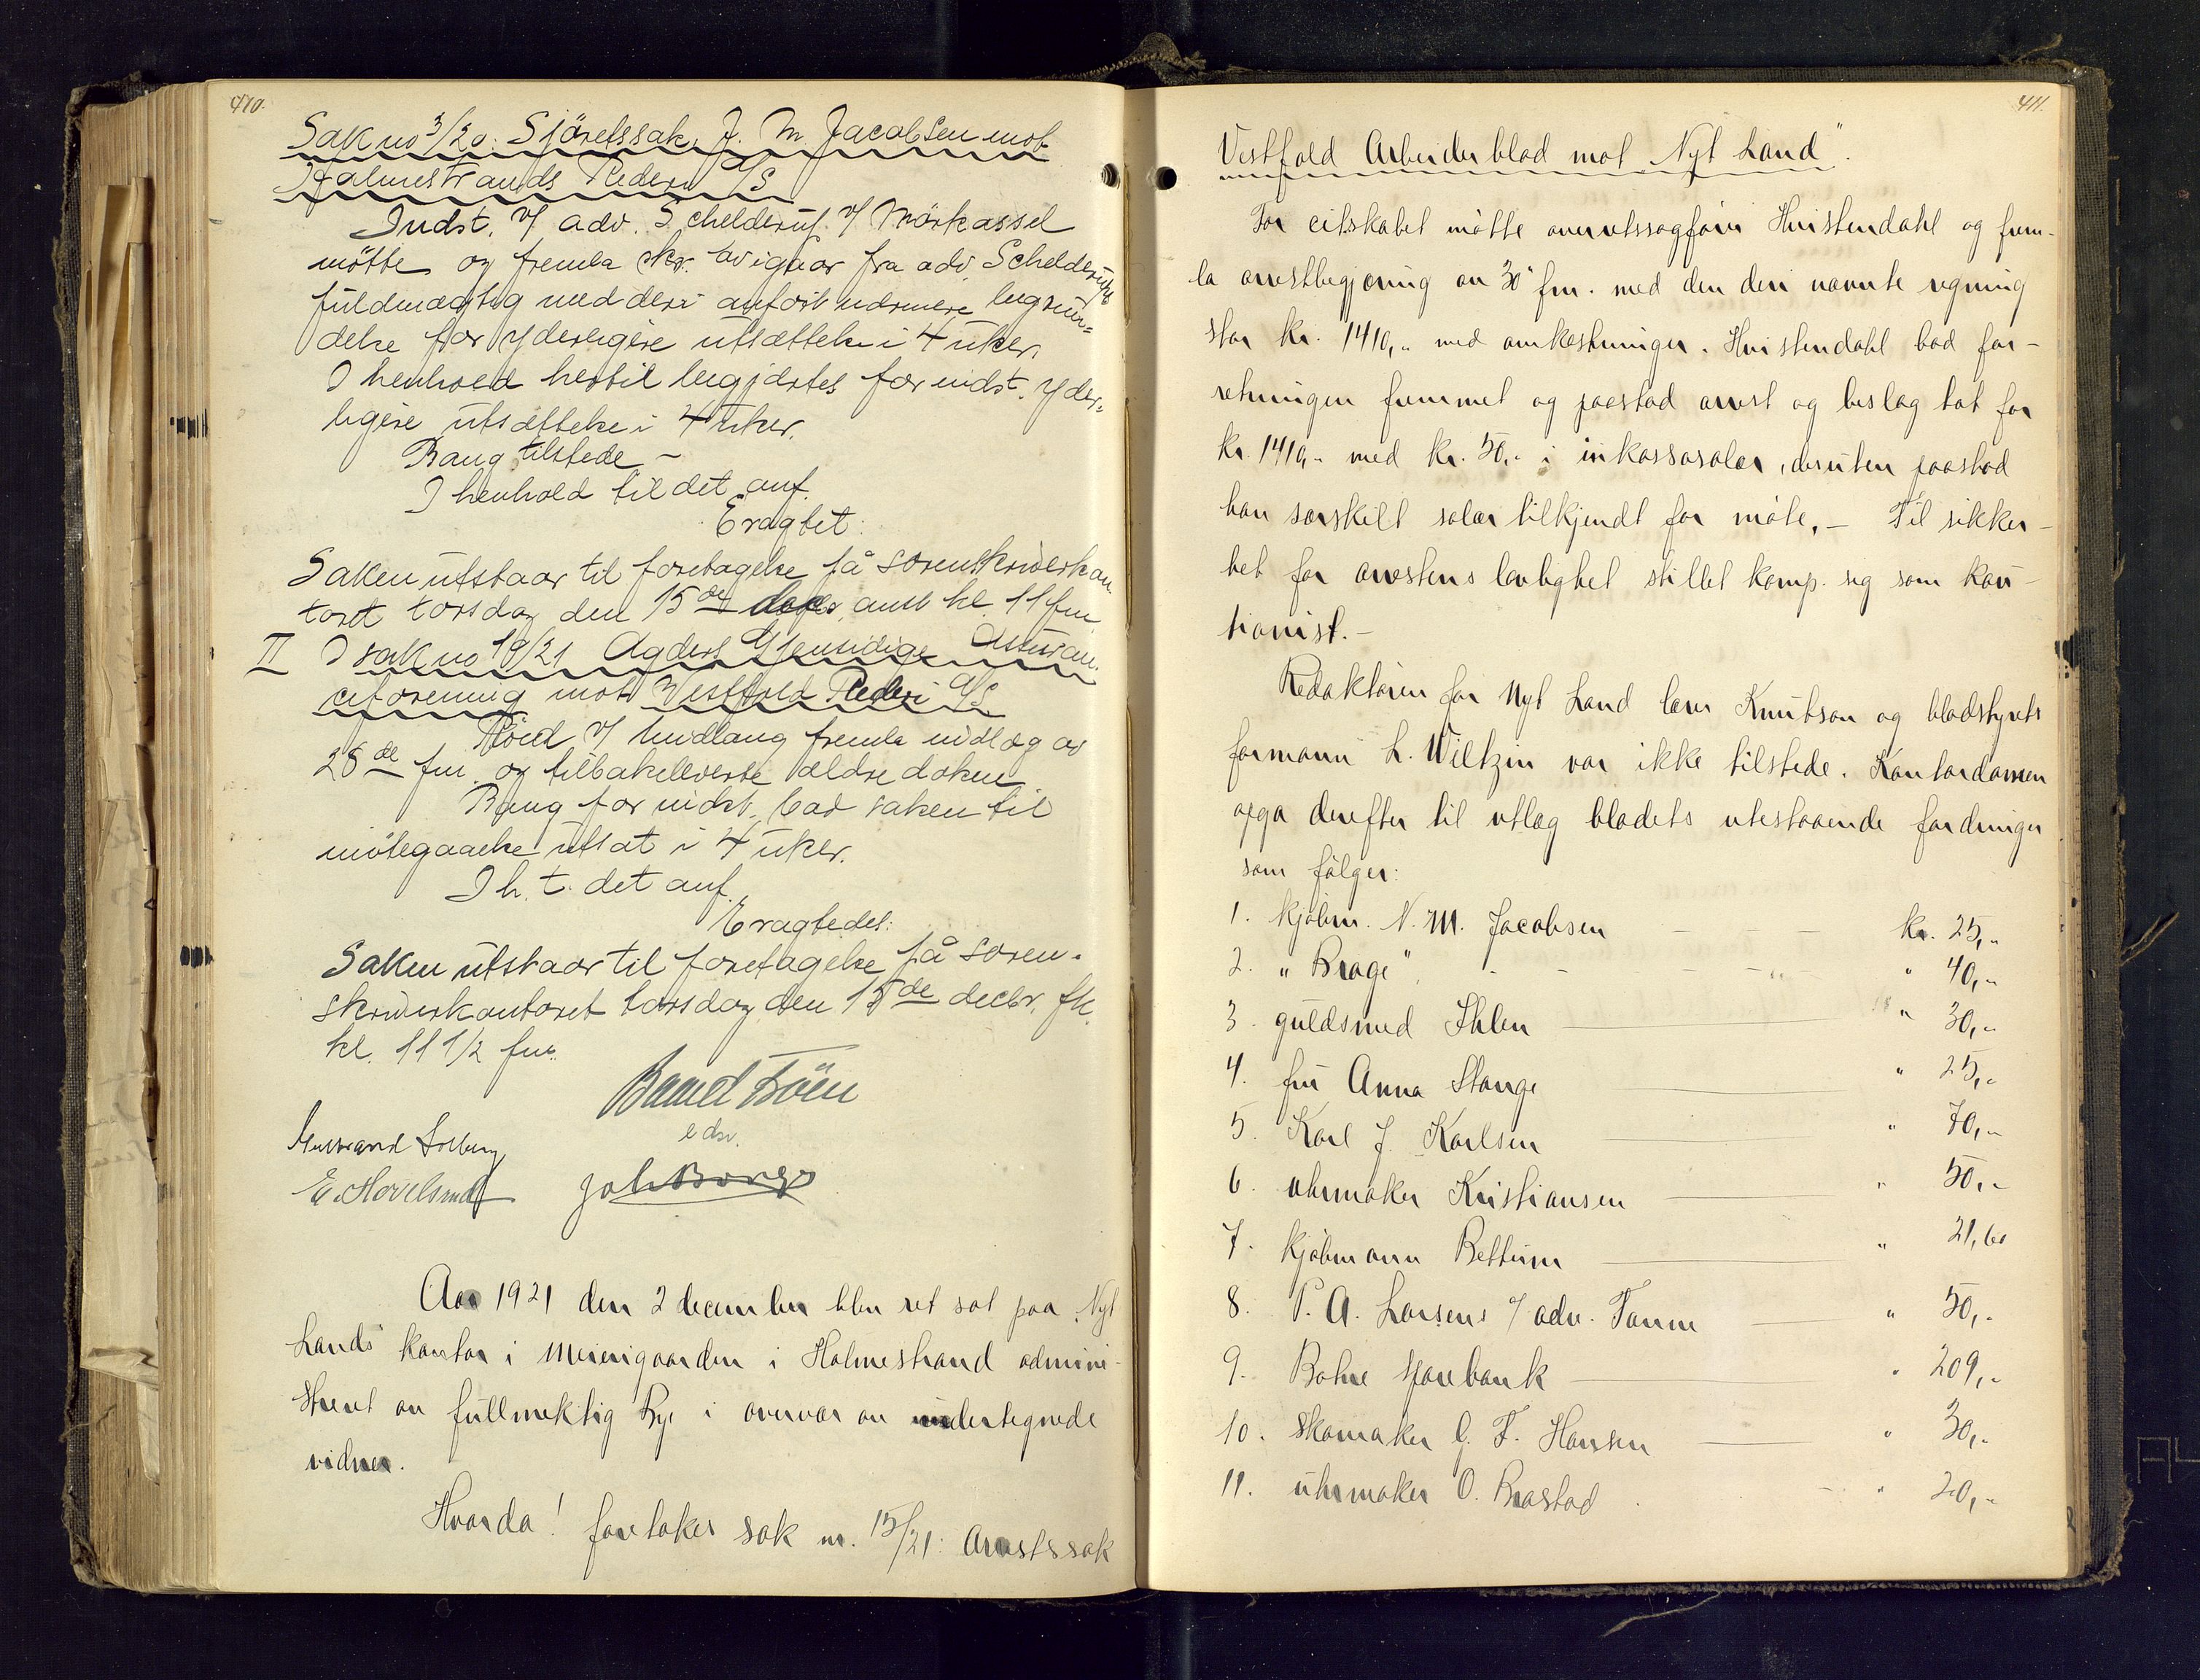 410.
Sak no 3/20. Sjöretssak. J. M. Jacobsen mot
Holmestrands Rederi A/S
Indst. v/ adv. Schelderup v/ Mörkassel
mötte og fremla skr. av igaar fra adv. Schelderups
fuldmægtig med deri anfört nærmere begrun-
delse for yderligere utsættelse i 4 uker.
I henhold hertil begjærtes for indst. yder-
ligere utsættelse i 4 uker.
Bang tilstede -
I henhold til det anf.
Eragtet:
Saken utstaar til foretagelse på sorenskriverkon-
toret torsdag den 15de decbr. kl. 11 fm.
II I sak no 19/21 Agders Gjensidige Assuran-
ceforening mot Vestfold Rederi A/S
v/ fremla indlæg av
28de fm. og tilbakeleverte ældre dokum.
Bang for indst. bad saken til
imötegaaelse utsat i 4 uker.
I h. t. det anf.
Eragtedes:
Saken utstaar til foretagelse på soren-
skriverkontoret torsdag den 15de decbr. fk.
kl. 11 1/2 fm.
E. Hovelsrud
Joh Borge
Aar 1921 den 2 december blev ret sat paa "Nyt
Lands" kontor i Meierigaarden i Holmestrand admini-
strert av fullmektig Rye i overvær av undertegnede
vidner.
Hvorda! foretokes sak nr. 15/21: Arrestsak
411.
Vestfold Arbeiderblad mot "Nyt Land".
For citskabet møtte overretssagfører Hvistendahl og frem-
la arrestbegjæring av 30' fm. med den deri nævnte regning
stor kr. 1410,- med omkostninger. Hvistendahl bad for-
retningen fremmet og paastod arrest og beslag tat for
kr. 1410,- med kr. 50,- i inkassosalær, desuten paastod
han særskilt salær tilkjendt for møte. - Til sikker-
het for arrestens lovlighet stillet komp. sig som kau-
tionist. -
Redaktøren for Nyt Land lærer Knutson og bladstyrets
formann L. Wiltzin var ikke tilstede. Kontordamen
opga derefter til utlæg bladets utestaaende fordringer
som følger:
1. kjøbm. N. M. Jacobsen kr. 25,-
2. "Brage" " 40,-
3. guldsmed Ihlen " 30,-
4. fru Anna Stange " 25,-
5. Karl J. Karlsen " 70,-
6. uhrmaker Kristiansen " 50,-
7. kjøbmann Bettum " 21,60
8. P. A. Larsens / adv. Tanum " 50,-
9. Botne sparebank " 209,-
10. skomaker C. F. Hansen " 30,-
11. uhrmaker O. Brastad " 20,-